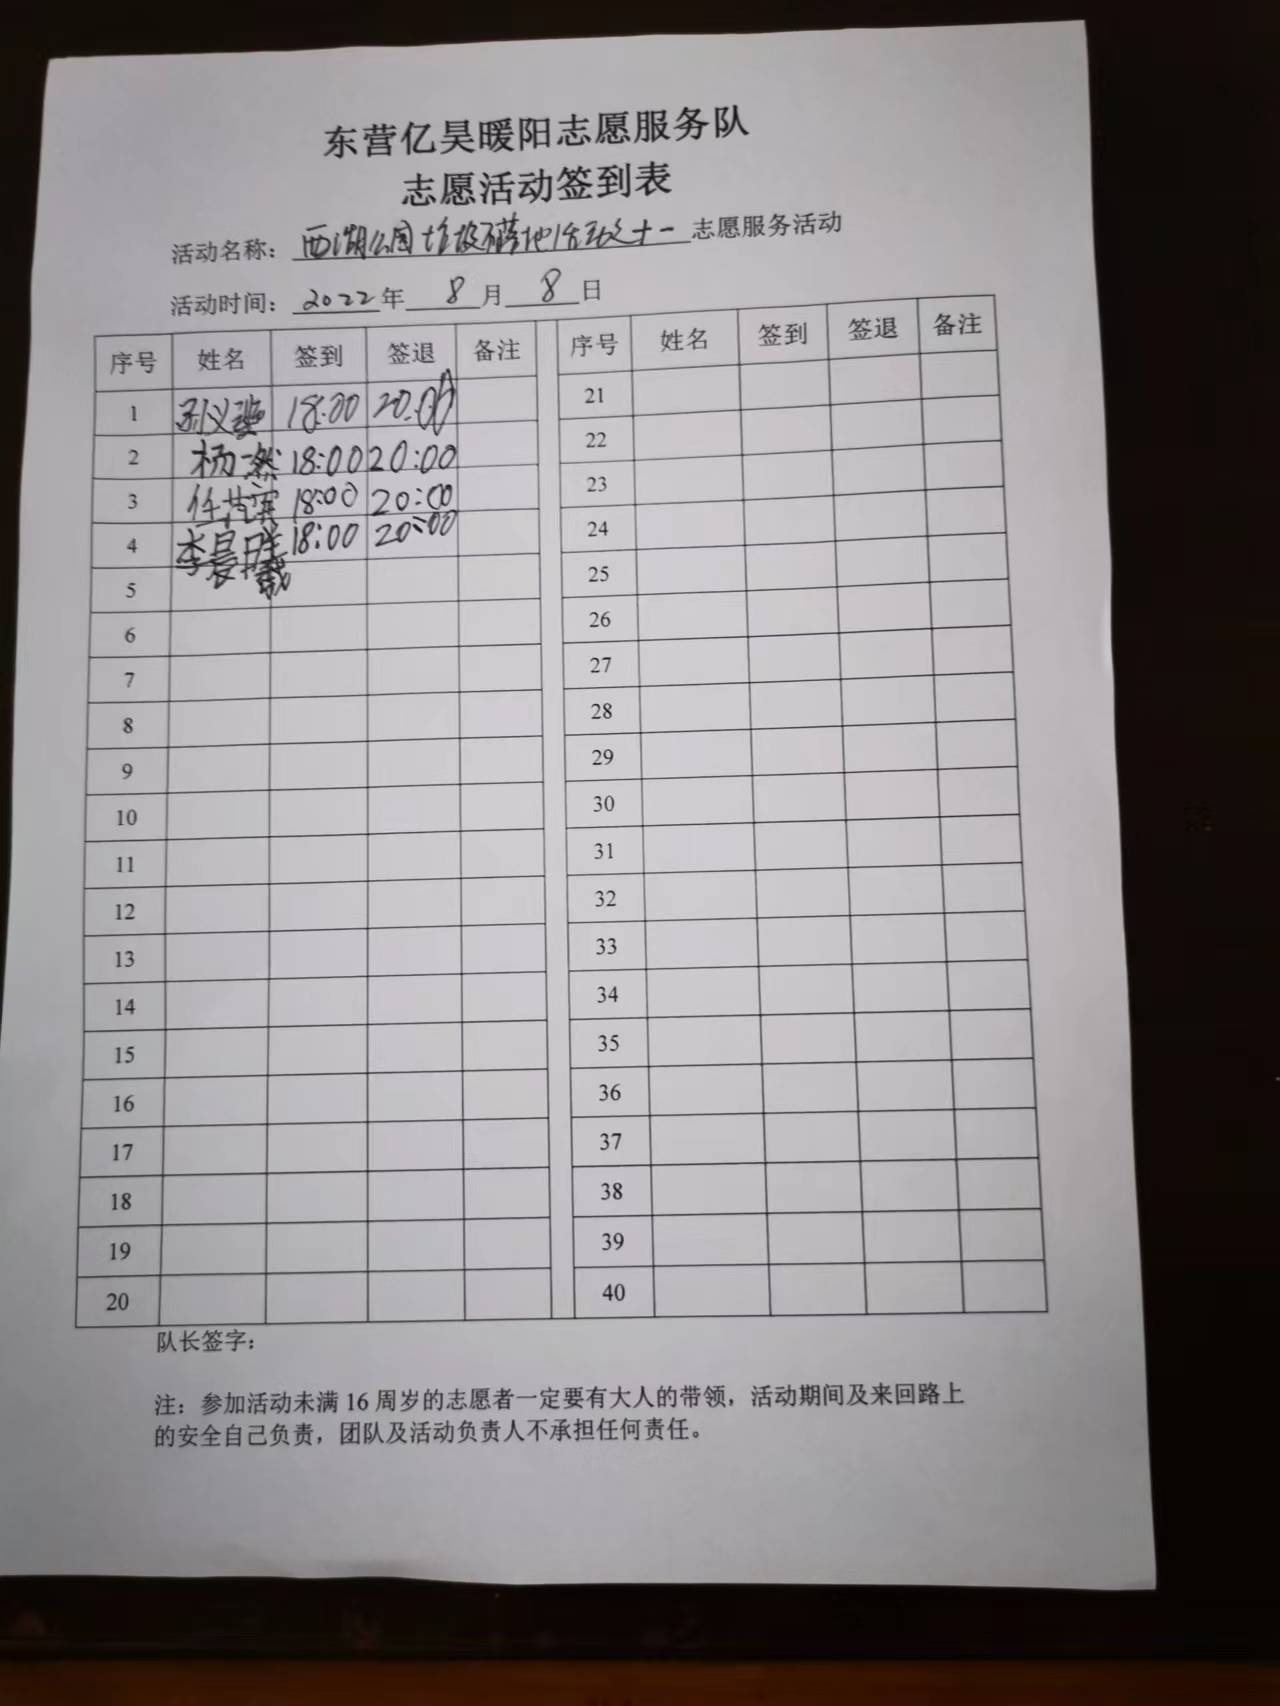 东营亿昊暖阳志愿服务队
志愿活动签到表
活动名称：西湖公园垃圾不落地活动之十一志愿服务活动
活动时间：2022年8月8日
序号 姓名 签到 签退 备注 序号 姓名 签到 签退 备注
1 18:00 20:00 21
2 杨 然 18:00 20:00 22
3 任 18:00 20:00 23
4 李晨曦 18:00 20:00 24
5 25
6 26
7 27
8 28
9 29
10 30
11 31
12 32
13 33
14 34
15 35
16 36
17 37
18 38
19 39
20 40
队长签字：
注：参加活动未满 16 周岁的志愿者一定要有大人的带领，活动期间及来回路上
的安全自己负责，团队及活动负责人不承担任何责任。